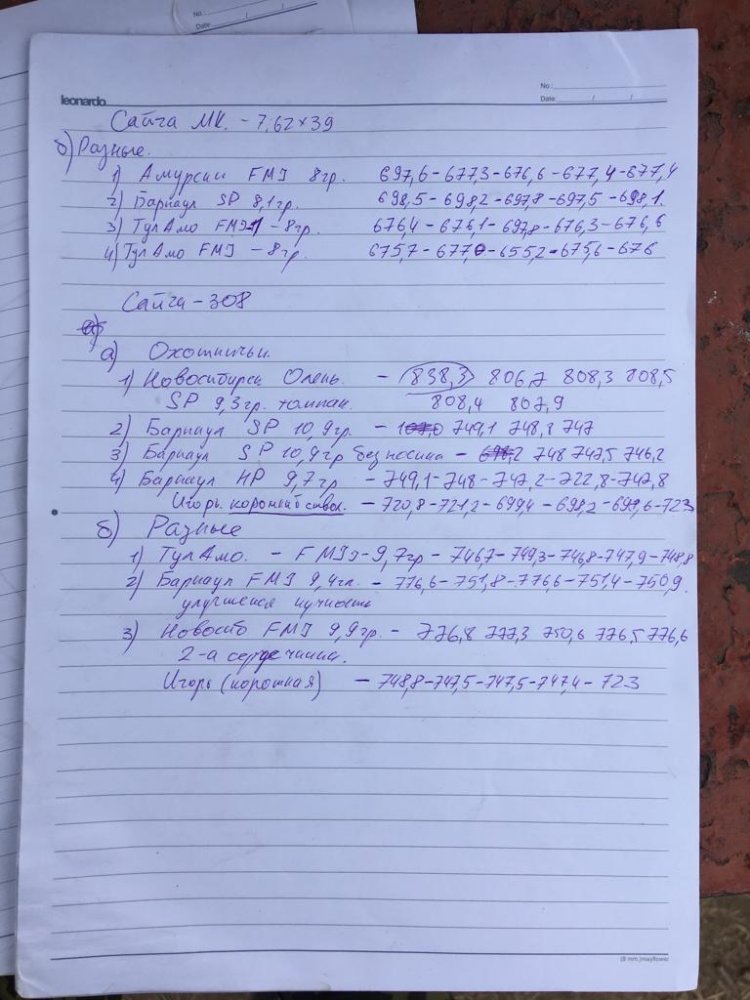 No
Date / /
leonardo
No :
Date / /
Сайга МК. - 7,62×39
б) Разные.
1) Амурский FMJ 8гр. 697,6-677,3-676,6-677,4-677,4
2) Барнаул SP 8,1гр. 698,5-698,2-697,8-697,5-698,1.
3) ТулАмо FMJ - 8гр. 676,4-676,1-697,8-676,3-676,6
4) ТулАмо FMJ - 8гр. 675,7-677,0-655,2-675,6-676
Сайга-308
а) Охотничьи.
1) Новосибирск Олень. - 838,3 806,7 808,3 808,5
SP 9,3гр. томпак. 808,4 807,9
2) Барнаул SP 10,9гр. - 749,1 748,8 747
3) Барнаул SP 10,9гр без носика - 748 747,5 746,2
4) Барнаул HP 9,7гр - 749,1-748-747,2-722,8-747,8
Игорь. короткий ствол. - 720,8-721,2-699,4-698,2-699,6-723
б) Разные
1) ТулАмо. - FMJ-9,7гр-746,7-749,3-746,8-747,9-748,8
2) Барнаул FMJ 9,4гр. - 776,6-751,8-776,6-751,4-750,9.
улучшенся кучность
3) Новосиб FMJ 9,9гр. - 776,8 777,3 750,6 776,5 776,6
2-а сердечника.
Игорь (короткая) - 748,8-747,5-747,5-747,4-723
(8 mm.)mayflower